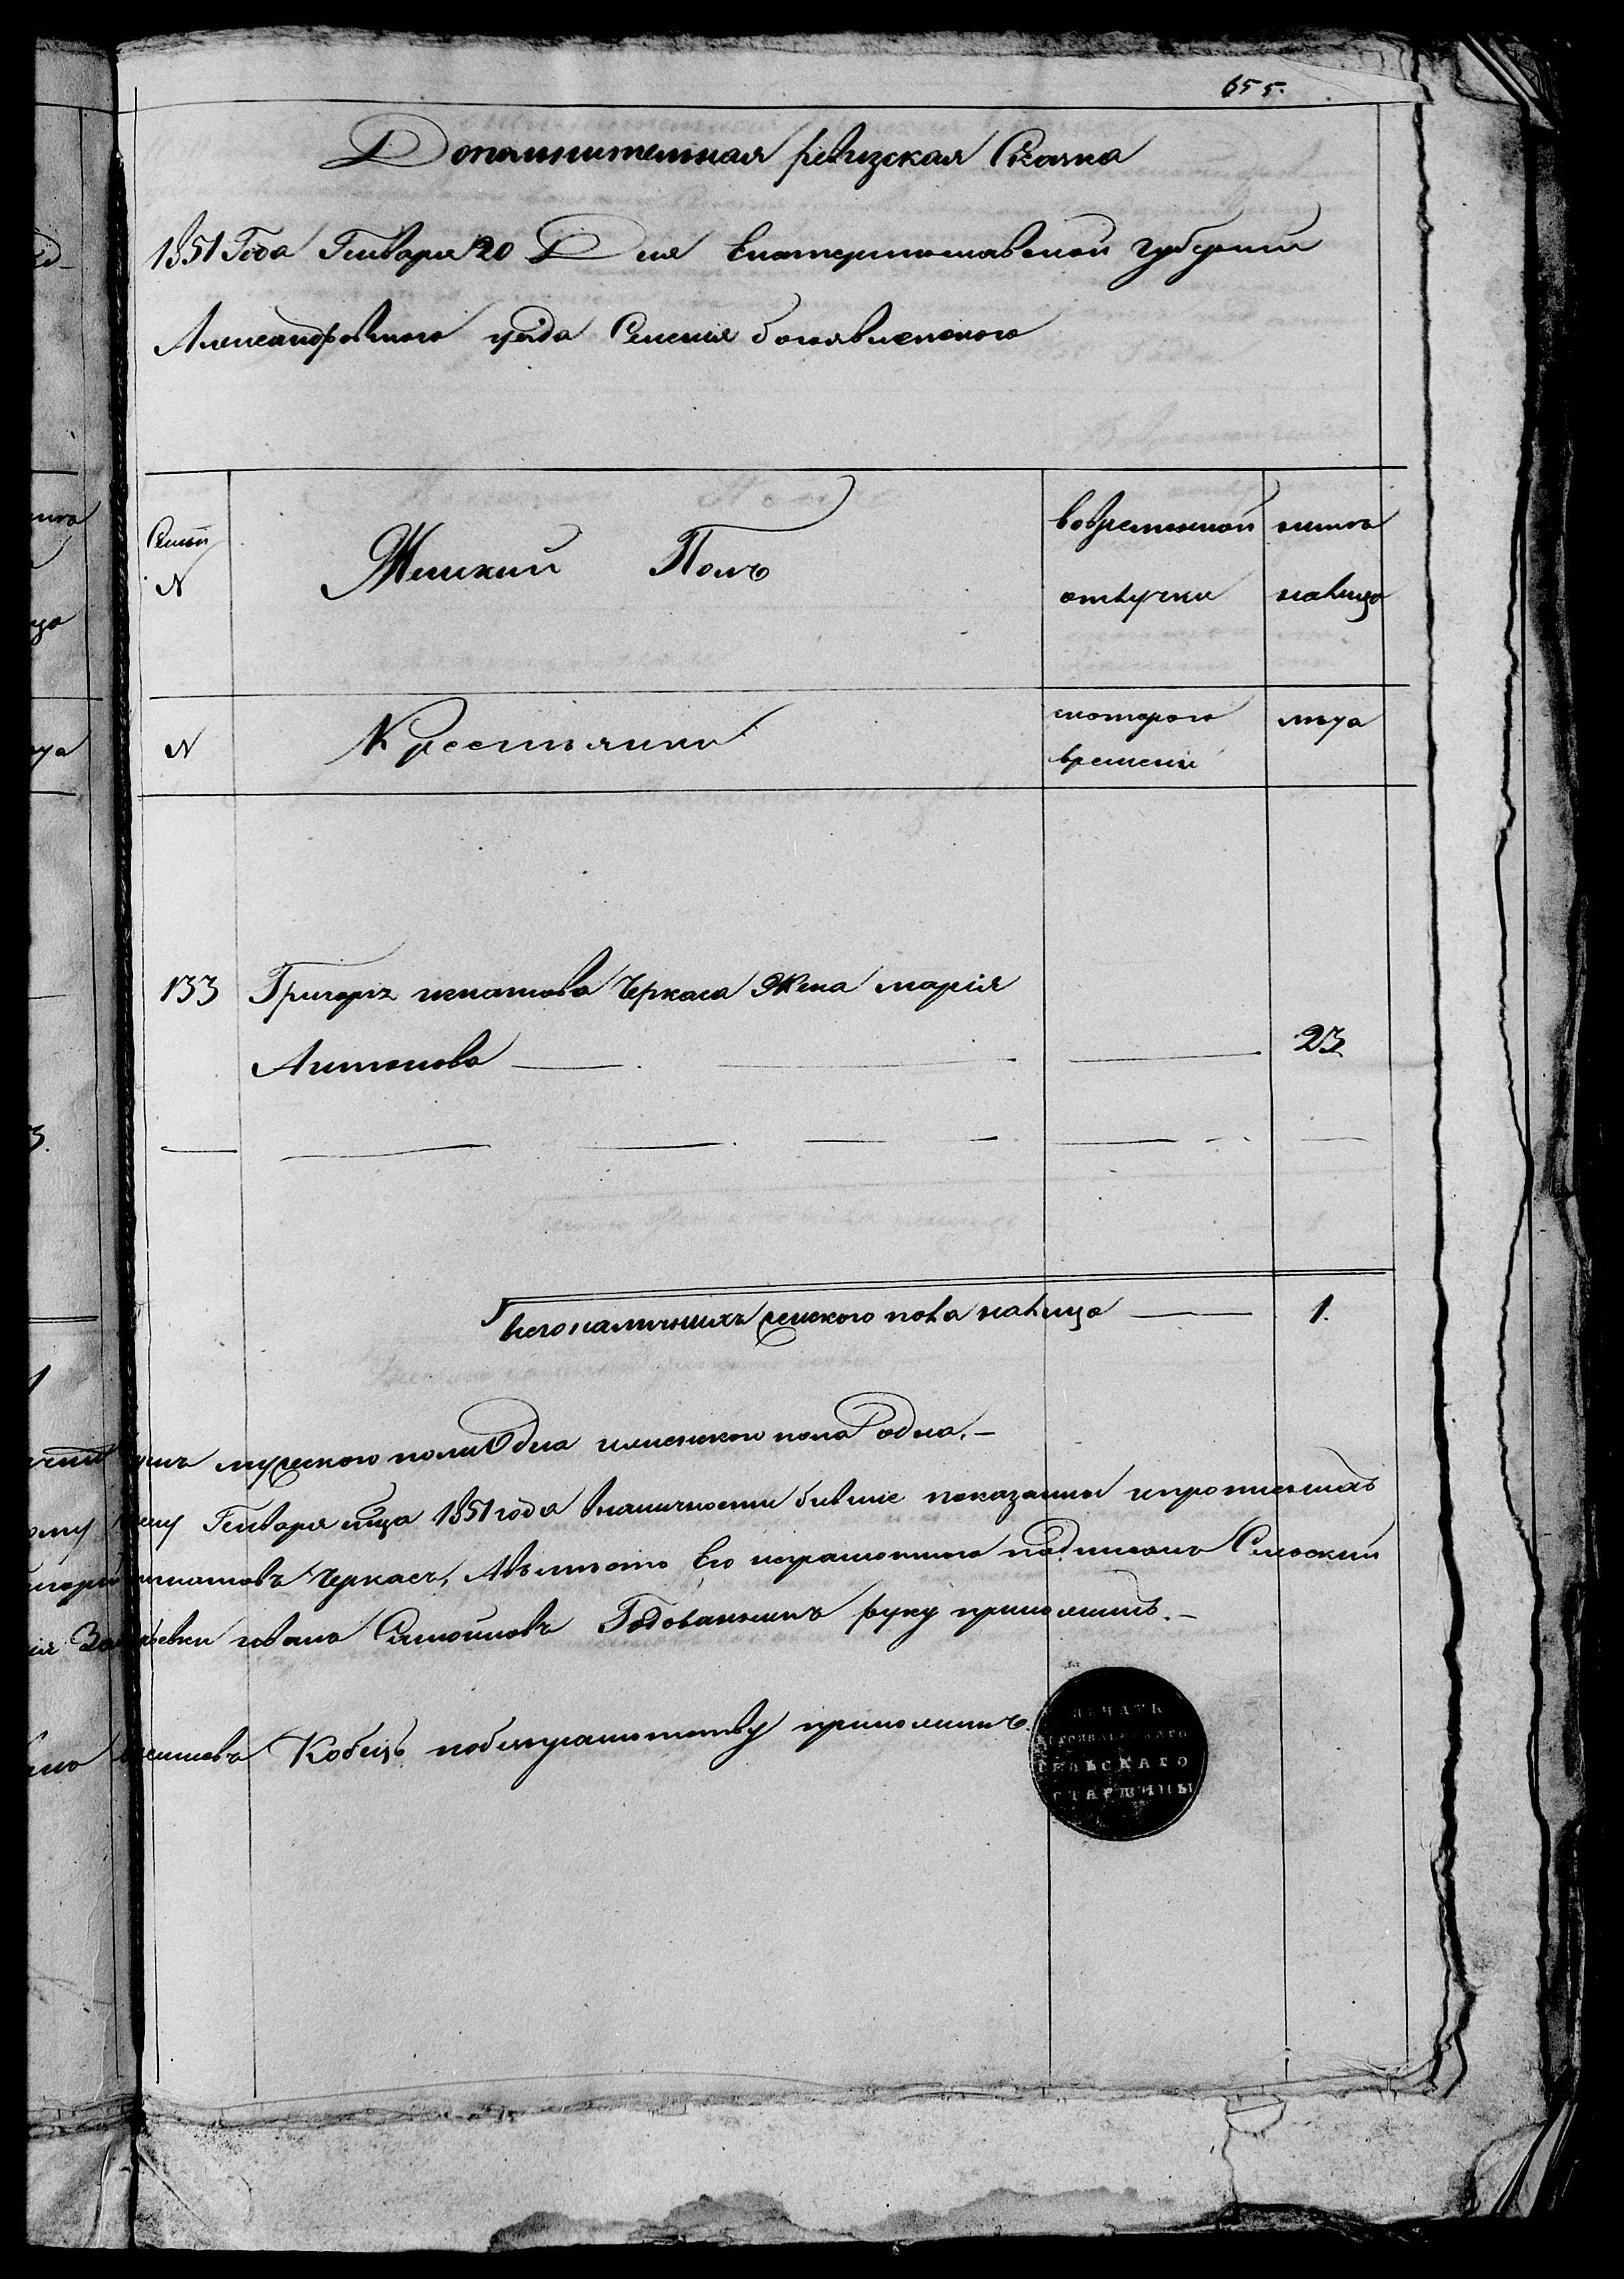 655.
Дополнительная ревизская Сказка
1851 Года Генваря 20 Дня Екатеринославской губернии
Александровского уезда Селения богоявленского
Семьи Женский Полъ вовременной ныня
N отлучки налицо
N Крестьянки скоторого лета
времени
133 Григорія игнатова Черкаса Жена марія
Антонова 23
всего наличныхъ женского пола налицо 1.
мужеского пола Одна иженского пола одна.
Генваря мца 1851 года вналичности бывшие показаны ипрописная
игнатовъ Черкасъ, Авместо Его неграмотного подписомъ Сельский
ивано Самойловъ Годованникъ руку приложилъ.
Кобецъ побезграмотству приложилъ
ПЕЧАТЬ
СЕЛЬСКАГО
СТАРШИНЫ